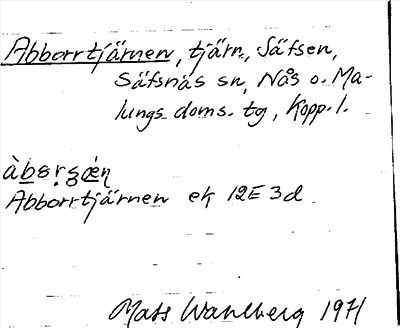 Abborrtjärnen, tjärn, Säfsen,
Säfsnäs sn, Nås o. Ma-
lungs doms. tg, Kopp. l.
Abborrtjärnen ek 12E 3d
Mats Wahlberg 1971